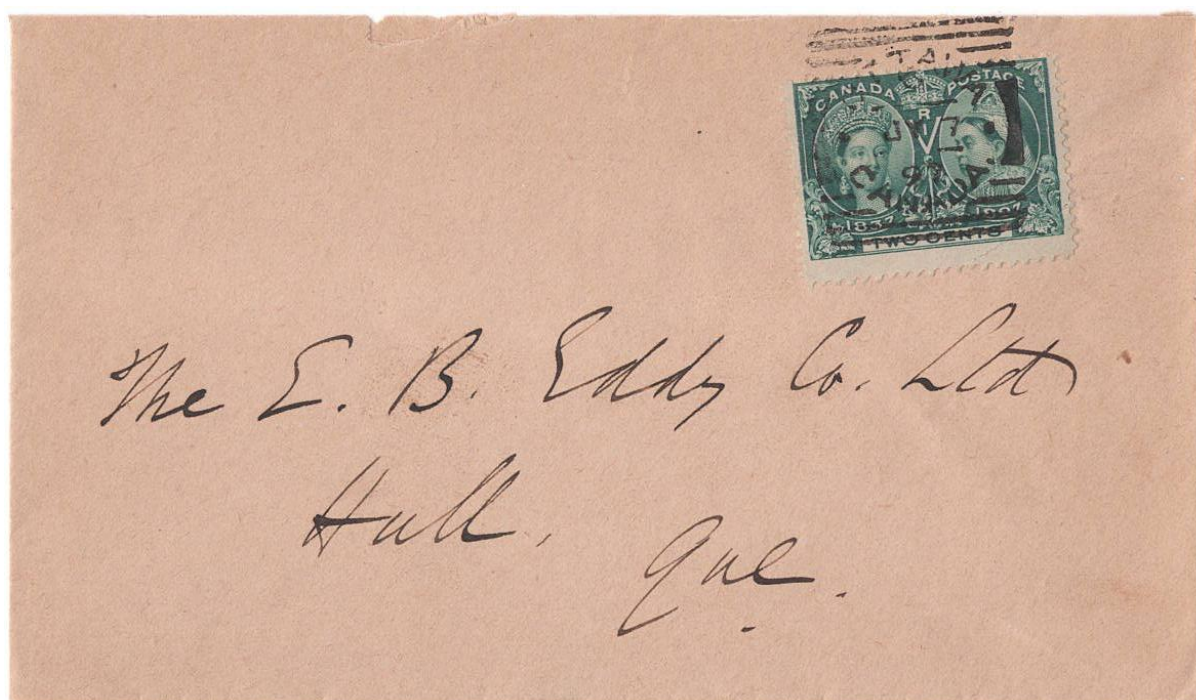 CANADA POSTAGE
V
R I
1837 1897
TWO CENTS
CANADA
The E. B. Eddy Co. Ltd
Hull, Que.